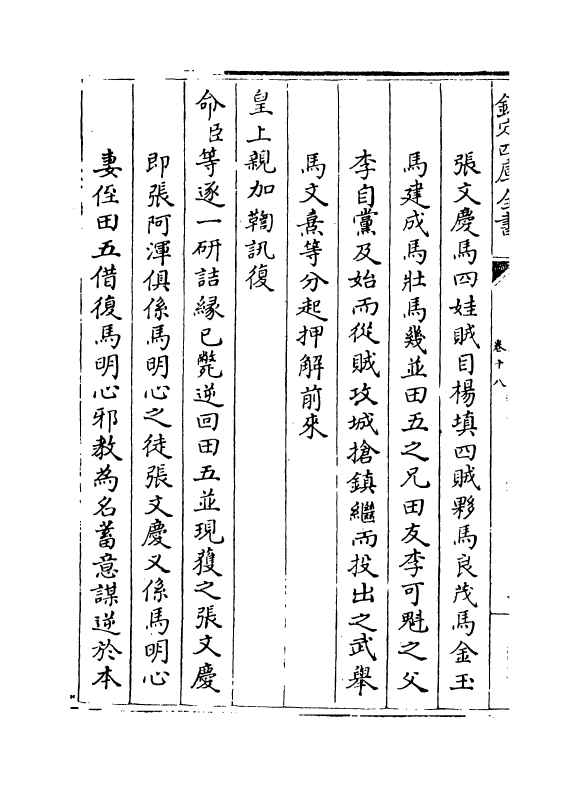 欽定四庫全書
卷十八
張文慶馬四娃賊目楊填四賊夥馬良茂馬金玉
馬建成馬壯馬幾並田五之兄田友李可魁之父
李自黨及始而從賊攻城搶鎮繼而投出之武舉
馬文熹等分起押解前來
皇上親加鞫訊復
命臣等逐一研詰緣已斃逆回田五並現獲之張文慶
即張阿渾俱係馬明心之徒張文慶又係馬明心
妻侄田五借復馬明心邪教為名蓄意謀逆於本